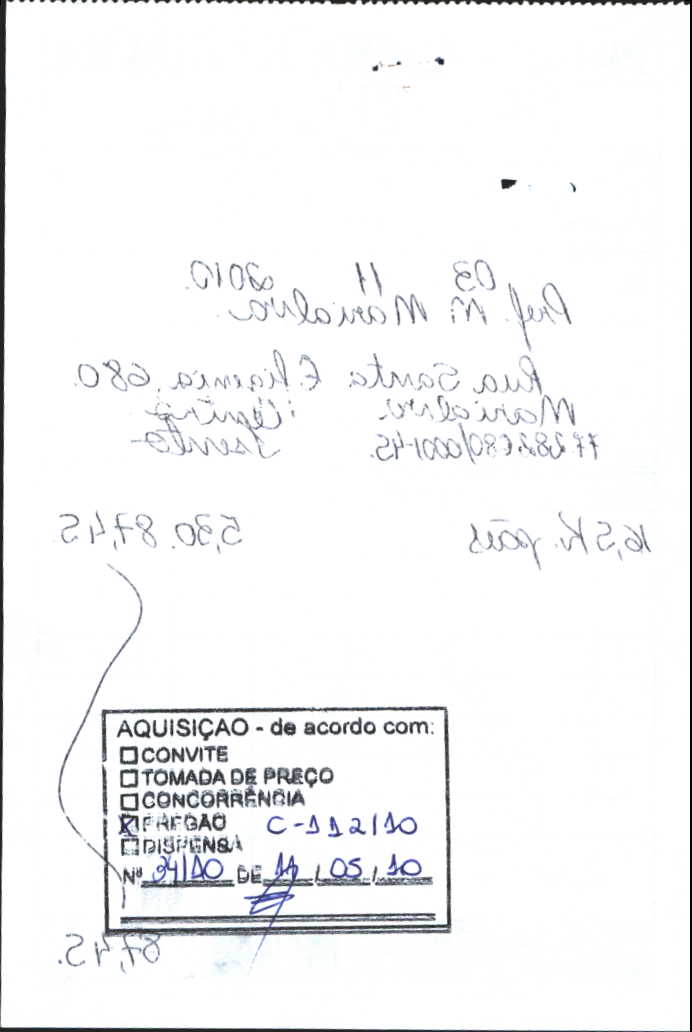 03 11 2010.
Pref. M. Marialva.
Rua Santa Efigenia, 680.
Marialva. Centro
77.282.680/0001-45. Isento
16,5 K. pães 5,30. 87,45
AQUISIÇAO - de acordo com:
☐ CONVITE
☐ TOMADA DE PREÇO
☐ CONCORRÊNCIA
☒ PREGÃO C-112/10
☐ DISPENSA
Nº 34/10 DE 11 / 05 / 10
87,45.